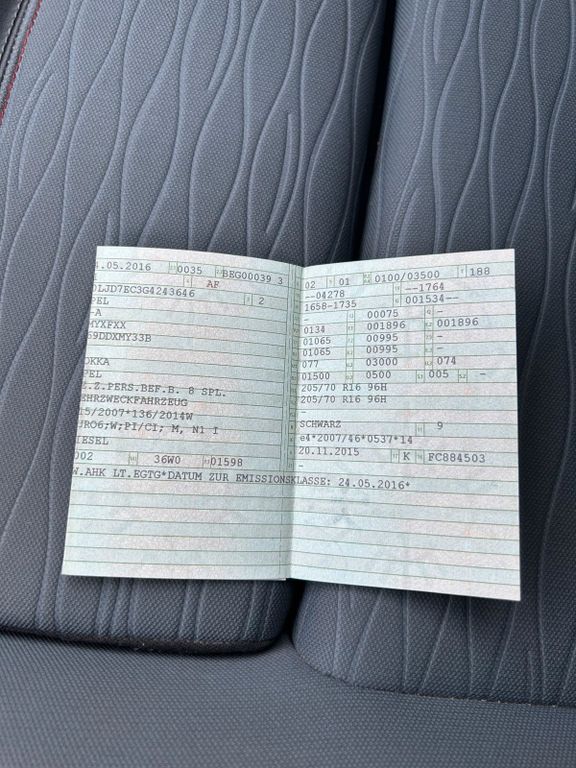 4.05.2016 0035 BEG00039 3
AF
0LJD7EC3G4243646 2
PEL
-A
MYXFXX
69DDXMY33B
OKKA
PEL
Z.Z.PERS.BEF.B. 8 SPL.
EHRZWECKFAHRZEUG
15/2007*136/2014W
URO6;W;PI/CI; M, N1 I
IESEL
002 36W0 01598
W.AHK LT.EGTG*DATUM ZUR EMISSIONSKLASSE: 24.05.2016*
02 01 0100/03500 188
--04278 --1764
1658-1735 001534--
- 00075 -
0134 001896 001896
01065 00995 -
01065 00995 -
077 03000 074
01500 0500 005 -
205/70 R16 96H
205/70 R16 96H
-
SCHWARZ 9
e4*2007/46*0537*14
20.11.2015 K FC884503
-